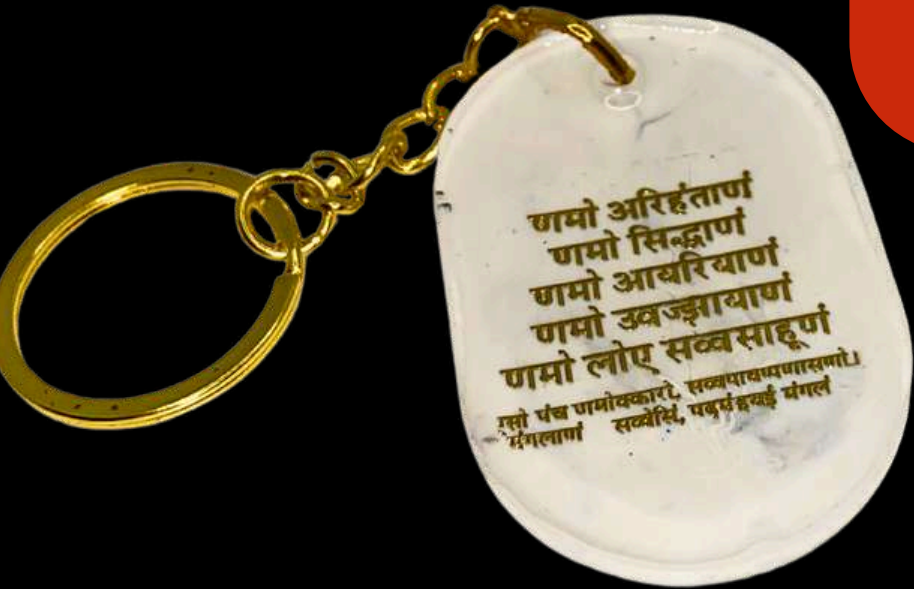 णमो अरिहंताणं
णमो सिद्धाणं
णमो आयरियाणं
णमो उवज्झायाणं
णमो लोए सव्वसाहूणं
पंच णमोक्कारो, सव्वपावप्पणासणो।
मंगलाणं सव्वेसिं, मंगलं